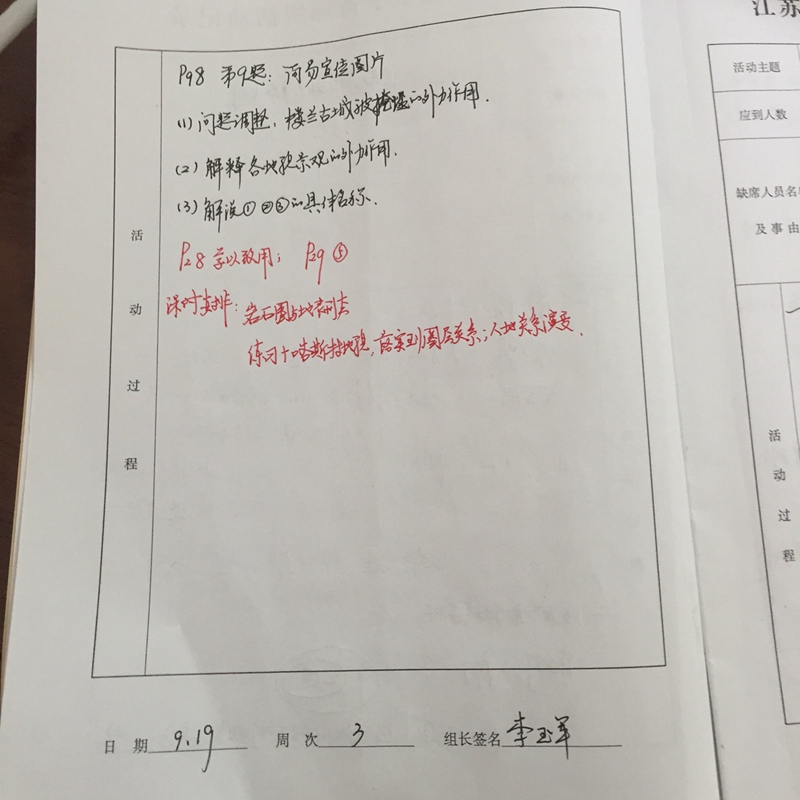 P98 第9题：河另宣位图片
(1) 问题调整，楼兰古城被掩埋的外力作用.
(2) 解释各地貌景观的外力作用.
(3) 解说①②③的具体名称.
P28 学以致用； P29 ⑤
课时安排：岩石圈与地表形态
练习+喀斯特地貌，落实到圈层关系；人地关系演变.
活
动
过
程
日 期 9.19 周 次 3 组长签名 李玉军
江苏
活动主题
应到人数
缺席人员名
及事由
活
动
过
程